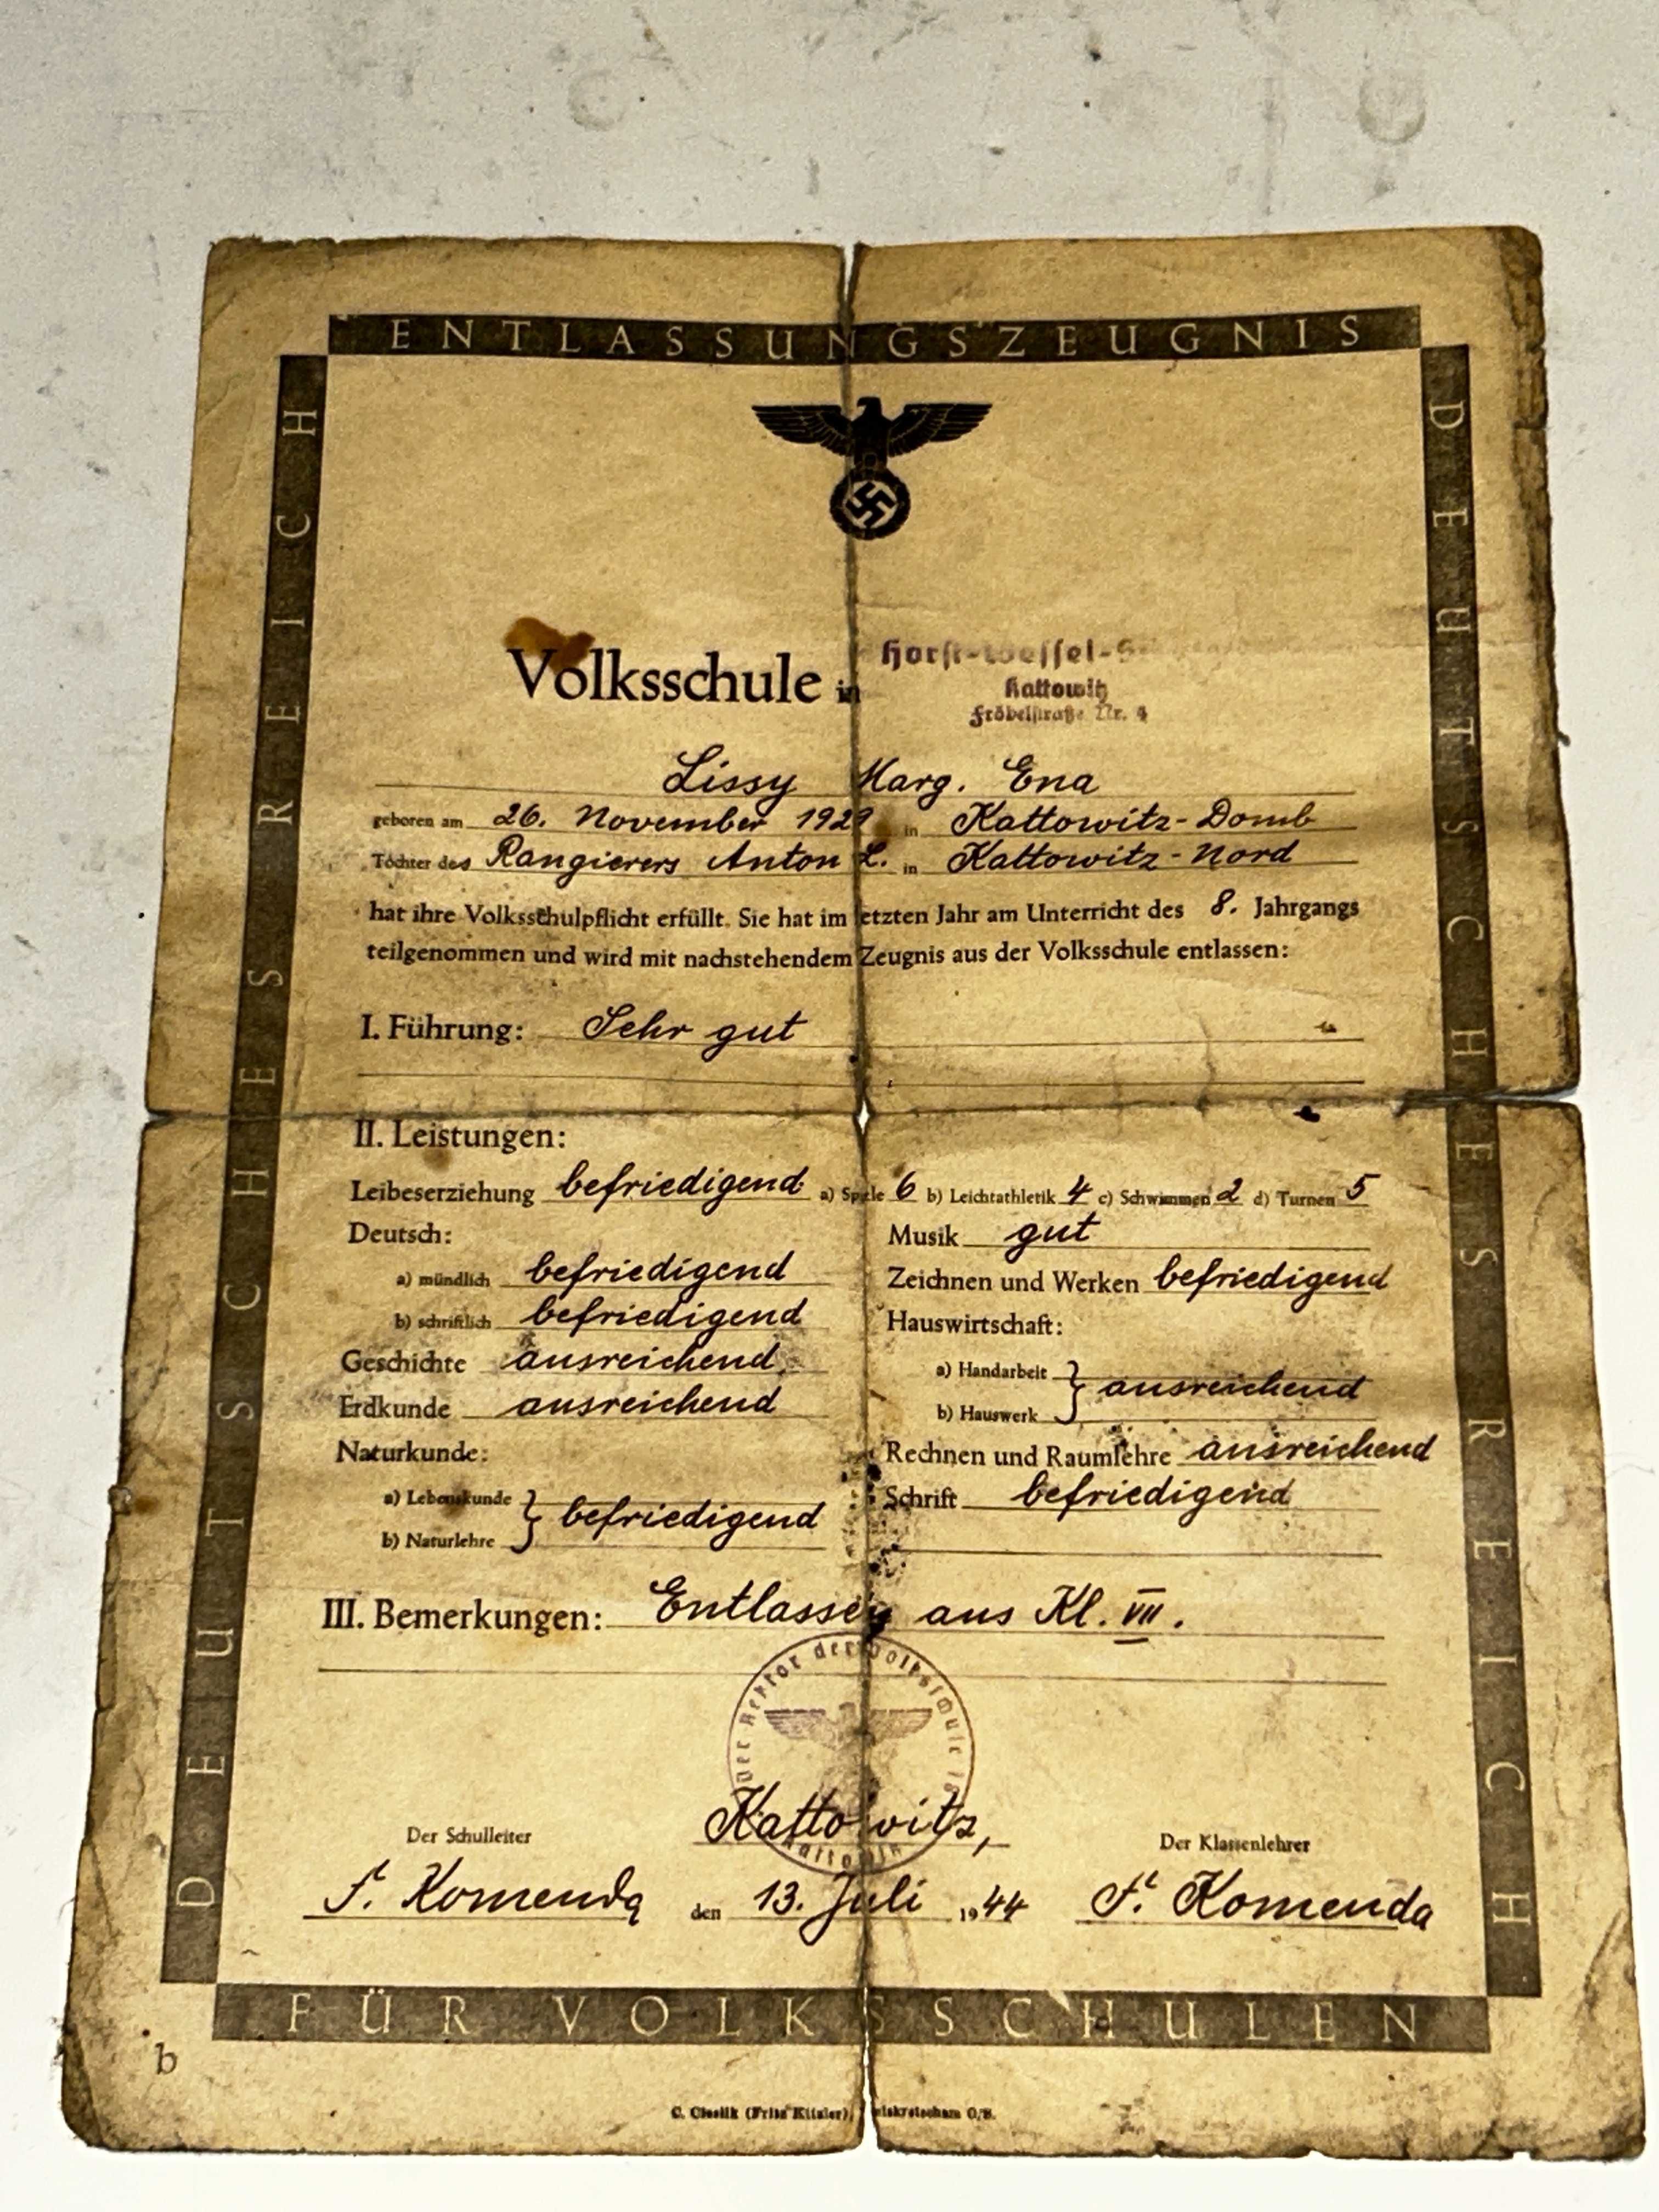 ENTLASSUNGSZEUGNIS
DEUTSCHES REICH
DEUTSCHES REICH
Volksschule in
Horst-Wessel-
Kattowitz
Fröbelstraße Nr. 4
Lissy Marg. Ena
geboren am 26. November 1929 in Kattowitz-Domb
Tochter des Rangierers Anton L. in Kattowitz-Nord
hat ihre Volksschulpflicht erfüllt. Sie hat im letzten Jahr am Unterricht des 8. Jahrgangs
teilgenommen und wird mit nachstehendem Zeugnis aus der Volksschule entlassen:
I. Führung: Sehr gut
II. Leistungen:
Leibeserziehung befriedigend a) Spiele 6 b) Leichtathletik 4 c) Schwimmen 2 d) Turnen 5
Deutsch:
a) mündlich befriedigend
b) schriftlich befriedigend
Geschichte ausreichend
Erdkunde ausreichend
Naturkunde:
a) Lebenskunde
b) Naturlehre } befriedigend
Musik gut
Zeichnen und Werken befriedigend
Hauswirtschaft:
a) Handarbeit
b) Hauswerk } ausreichend
Rechnen und Raumlehre ausreichend
Schrift befriedigend
III. Bemerkungen: Entlassen aus Kl. VII.
Der Rektor der Volksschule 18
Kattowitz
Kattowitz,
Der Schulleiter
Der Klassenlehrer
F. Komenda
den 13. Juli 1944
F. Komenda
FÜR VOLKSSCHULEN
b
C. Cieslik (Fritz Kitzler), O/S.